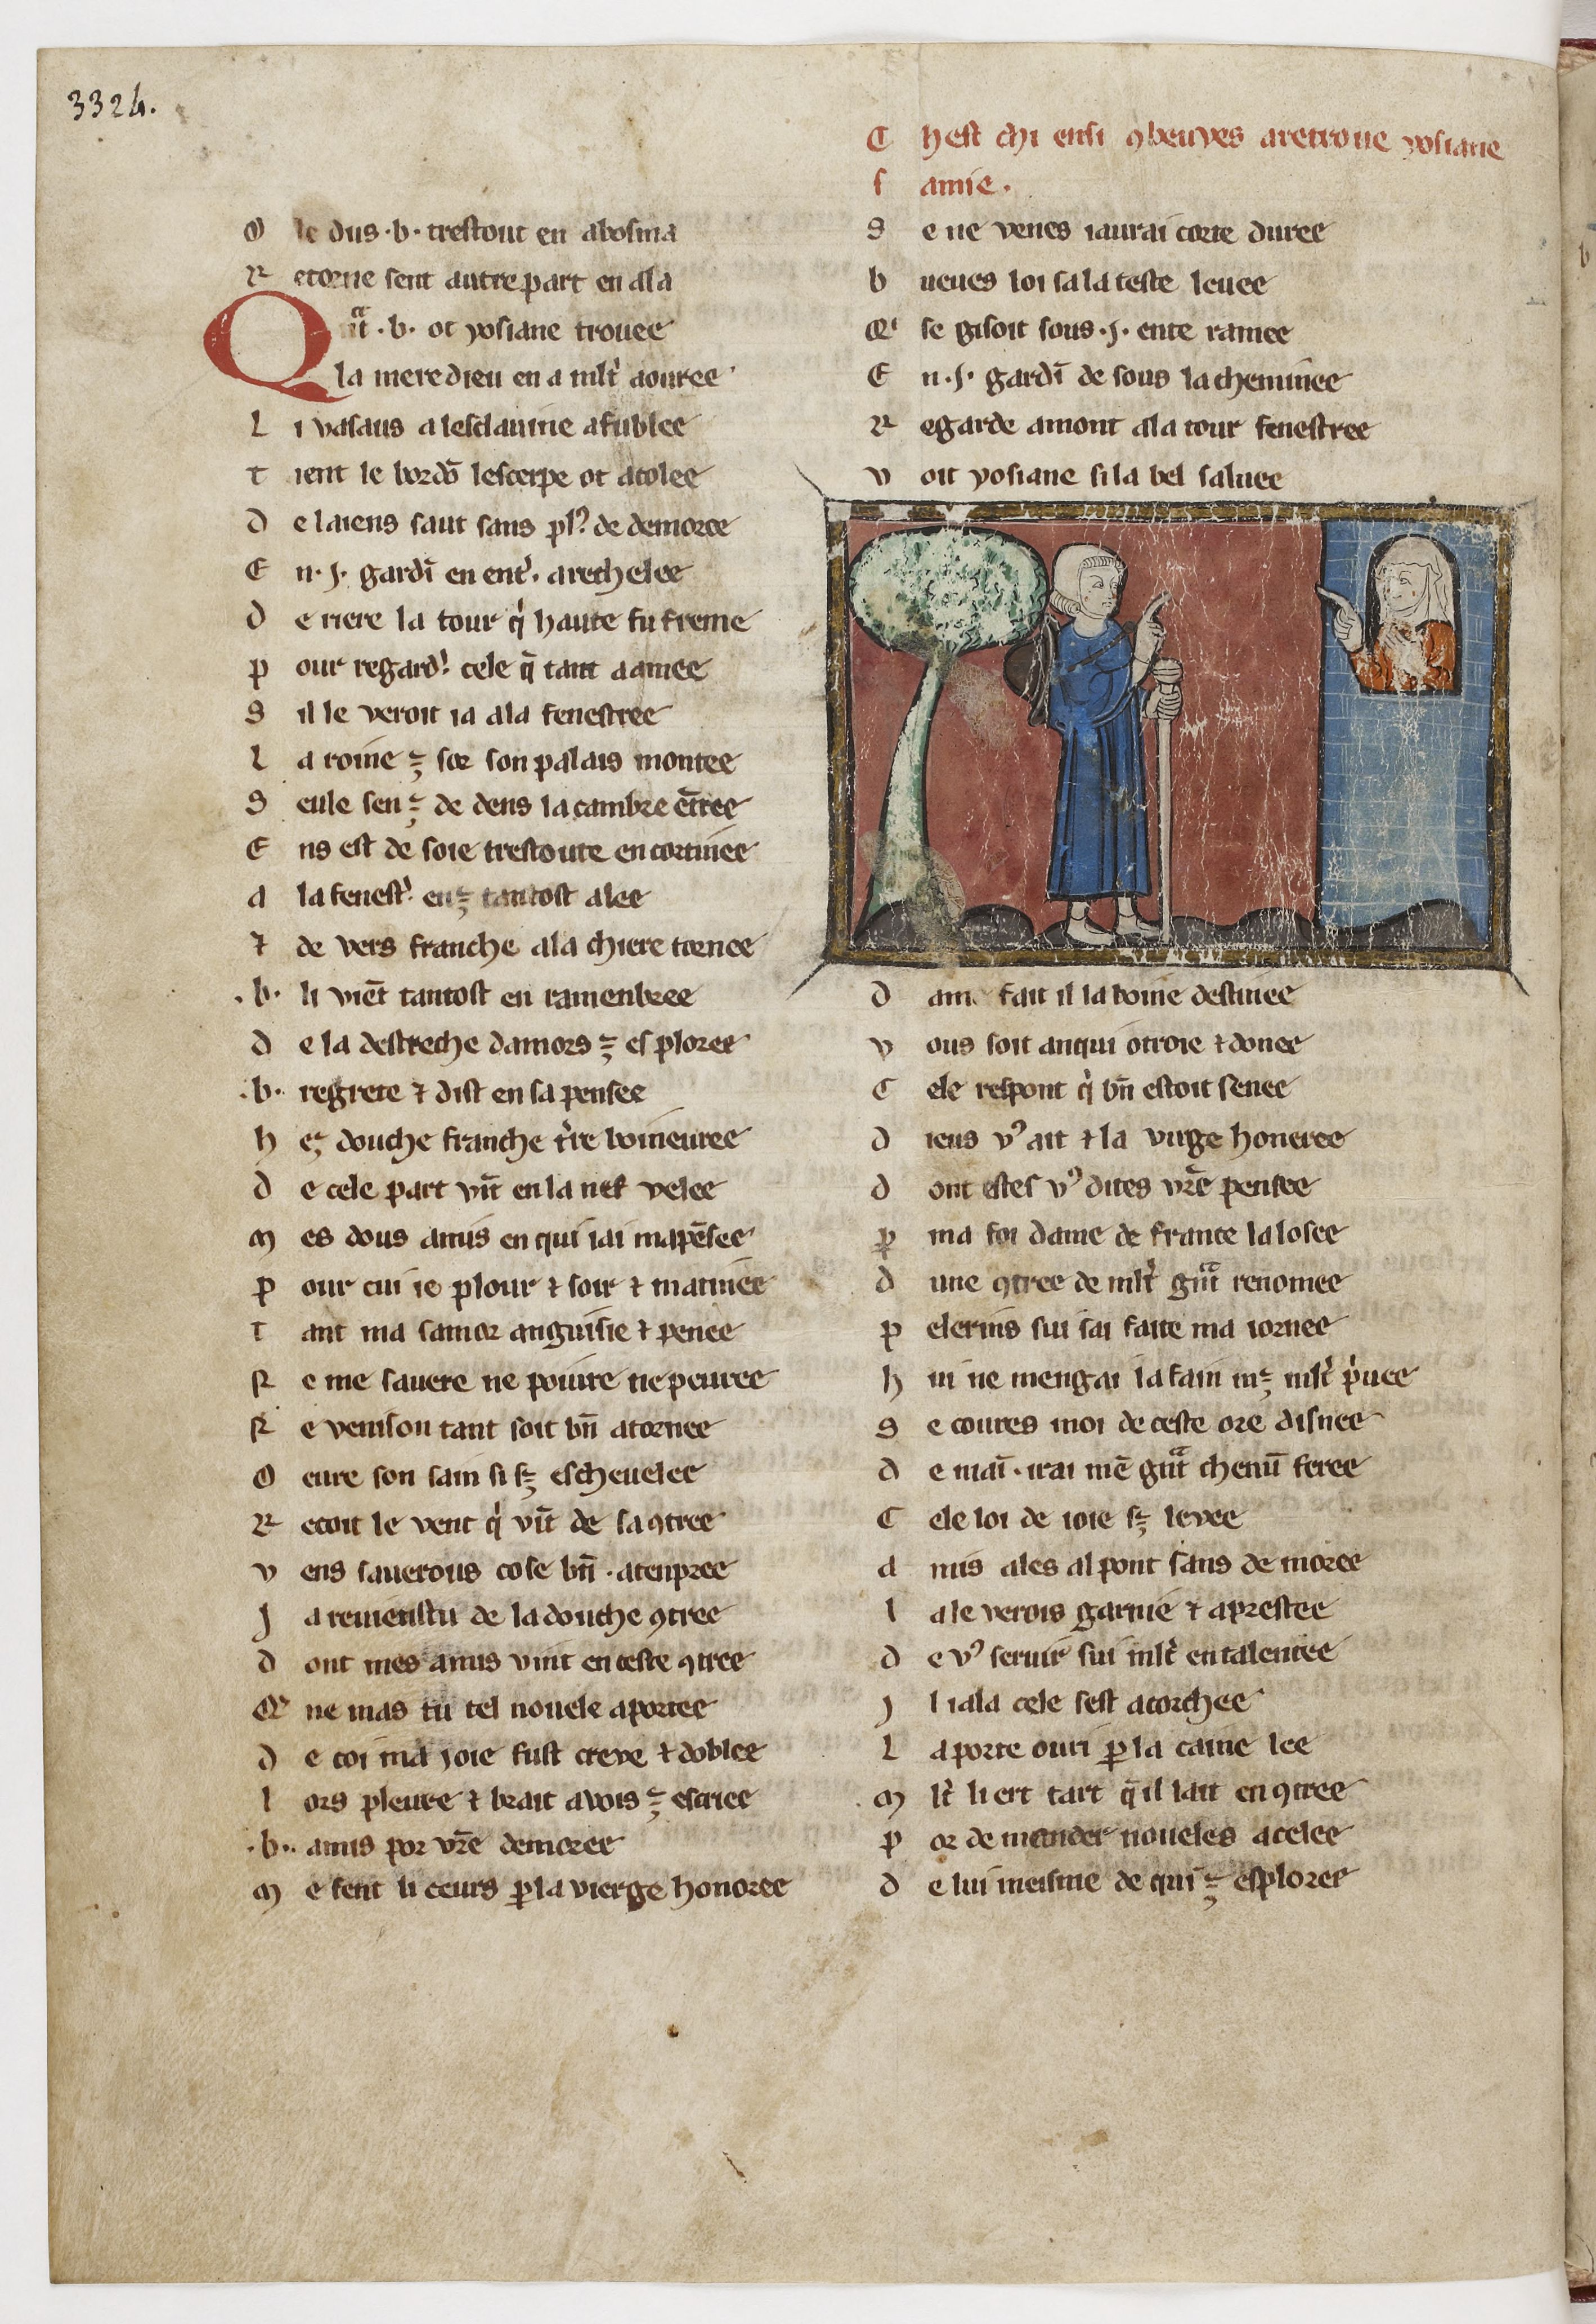 3324.
O le dus .b. trestout en abosma
R etorne sent autre part en ala
Q ᷓnt .b. ot yosiane trouee
la mere dieu en a ml᷒t aouree
L i vasaus a lesclauine afublee
t ient le bordō lescerpe ot acolee
d e laiens saut sans plꝰ de demoree
E n .j. gardī en ent᷒. a rechelee
d e riere la tour q̍ haute fu freme
p our regard᷒ cele q̄ tant a amee
S il le veroit ia a la fenestree
l a roine ꝫ sor son palais montee
S eule sen ꝫ de dens la cambre ētree
E ns est de soie trestoute encortinee
a la fenest᷒ enꝫ tantost alee
⁊ de vers franche a la chiere tornee
.b. li viēt tantost en ramenbree
d e la destreche damors ꝫ esploree
.b. regrete ⁊ dist en sa pensee
h eꝫ douche franche t᷒re boineuree
d e cele part vīt en la nef velee
m es dous amis en qui iai ma pēsee
p our cui ie plour ⁊ soir ⁊ matinee
t ant ma samor anguisie ⁊ penee
N e me sauere ne poiure ne peuree
N e venison tant soit bn̄ atornee
O eure son sain si sꝫ escheuelee
R ecoit le vent q̍ vīt de sa ꝯtree
v ens sauerous cose bn̄ . atenpree
j a reuiens tu de la douche ꝯtree
d ont mes amis vint en ceste ꝯtree
Qͥ ne mas tu tel nouele aportee
d e coi ma joie fust creue ⁊ doblee
l ors pleure ⁊ brait a vois ꝫ escriee
.b. amis por vr̄e demoree
m e fent li ceurs ꝑ la vierge honoree
C hest chi ensi ꝯ beuves a retroue yosiane
s amie .
S e ne venes iaurai corte duree
b ueues loi sa la teste leuee
Qͥ se gisoit sous .j. ente ramee
E n .j. gardī de sous la cheminee
R egarde amont a la tour fenestree
v oit yosiane si la bel saluee
d ame fait il la boine destinee
v ous soit anqui otroie ⁊ donee
C ele respont q̍ bn̄ estoit senee
d ieus vꝰ ait ⁊ la virge honeree
d ont estes vꝰ dites vr̄e pensee
ꝑ ma foi dame de france la losee
d une ꝯtree de ml᷒t gᷓnt renomee
p elerins sui sai faite ma iornee
h ui ne mengai la fain mꝫ ml᷒t p̍uee
S e coures moi de ceste ore disnee
d e maī . irai mē gᷓnt chemī feree
C ele loi de ioie sꝫ levee
a mis ales al pont sans de moree
l a le verois garnie ⁊ aprestee
d e vꝰ seruir sui ml᷒t entalentee
j l i ala cele sest acorchee
L a porte ouri ꝑ la caine lee
m l᷒t li ert tart q̄ il lait encontree
p or demander noueles a celee
d e lui meisme de qui ꝫ esploree